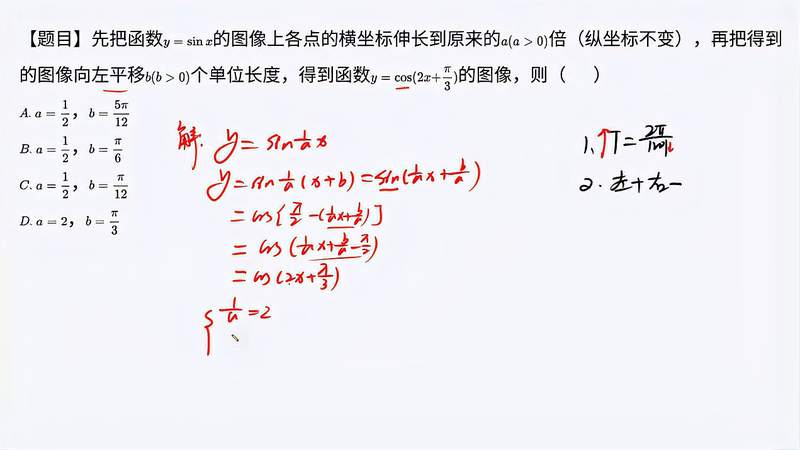 【题目】先把函数y=sin x的图像上各点的横坐标伸长到原来的a(a>0)倍（纵坐标不变），再把得到
的图像向左平移b(b>0)个单位长度，得到函数y=cos(2x+π/3)的图像，则（ ）
A. a=1/2，b=5π/12
B. a=1/2，b=π/6
C. a=1/2，b=π/12
D. a=2，b=π/3
解. y=sin 1/a x
y=sin 1/a (x+b)=sin(1/a x+b/a)
=cos[π/2-(1/a x+b/a)]
=cos(1/a x+b/a-π/2)
=cos(2x+π/3)
{1/a=2
1、↑T=2π/|ω|↓
2. 左+右-